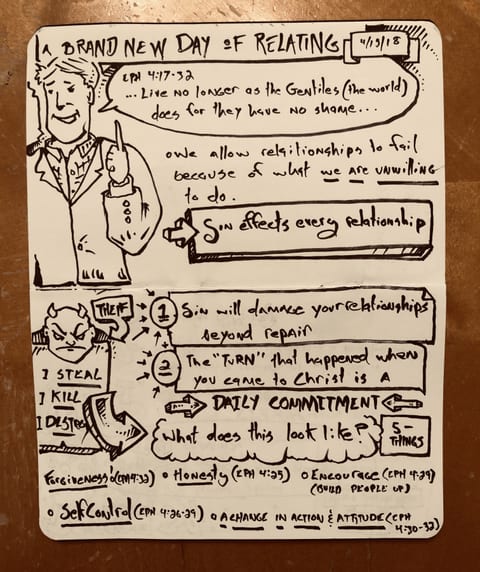 A BRAND NEW DAY OF RELATING
4/15/18
EPH 4:17-32
...Live no longer as the Gentiles (the world)
does for they have no shame...
We allow relationships to fail
because of what we are unwilling
to do.
Sin effects every relationship
THEIF
I STEAL
I KILL
I DESTROY
1 Sin will damage your relationships
beyond repair
+
2 The "TURN" that happened when
you came to Christ is A
DAILY COMMITMENT
What does this look like?
5-
THINGS
Forgiveness (EPH 4:32) o Honesty (EPH 4:25) o Encourage (EPH 4:29)
(BUILD PEOPLE UP)
o Self Control (EPH 4:26-29) o A CHANGE IN ACTION & ATTITUDE (EPH
4:30-32)